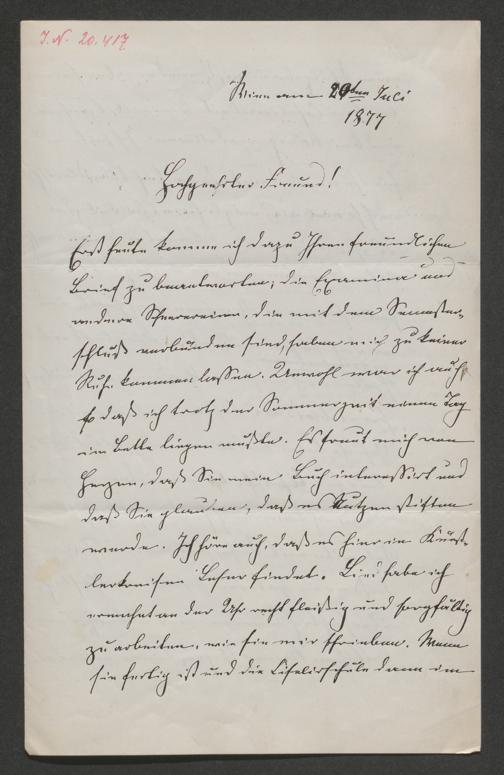 I. N. 20.417
Wien am 29ten Juli
1877
Hochgeehrter Freund!
Erst heute komme ich dazu Ihren freundlichen
Brief zu beantworten; die Examina und
andere Scherereien, die mit dem Semester-
schluß verbunden sind, haben mich zu keiner
Ruhe kommen lassen. Unwohl war ich auch,
so daß ich trotz der Sommerzeit einen Tag
im Bette liegen mußte. Es freut mich von
Herzen, daß Sie mein Buch interessirt und
daß Sie glauben, daß es Nutzen stiften
werde. Ich höre auch, daß es hier in Künst-
lerkreisen Leser findet. habe ich
ermahnt an der Uhr recht fleißig und sorgfältig
zu arbeiten, wie Sie mir schrieben. Wenn
sie fertig ist und die Ciselirschule dann im